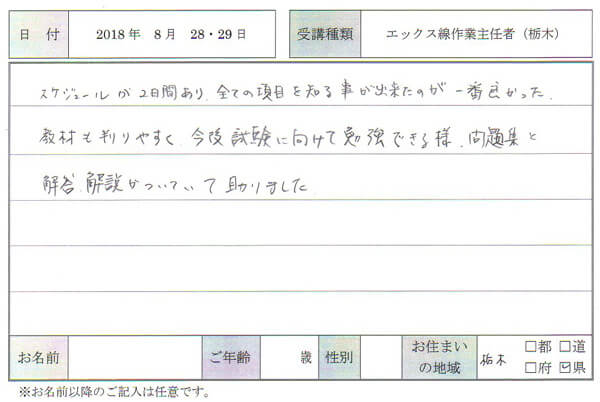 日 付 2018年 8月 28・29日 受講種類 エックス線作業主任者(栃木)
スケジュールが2日間あり、全ての項目を知る事が出来たのが一番良かった。
教材も判りやすく、今後試験に向けて勉強できる様、問題集と
解答、解説がついていて助かりました
お名前 ご年齢 歳 性別 お住まいの地域 栃木 □都 □道 □府 ☑県
※お名前以降のご記入は任意です。